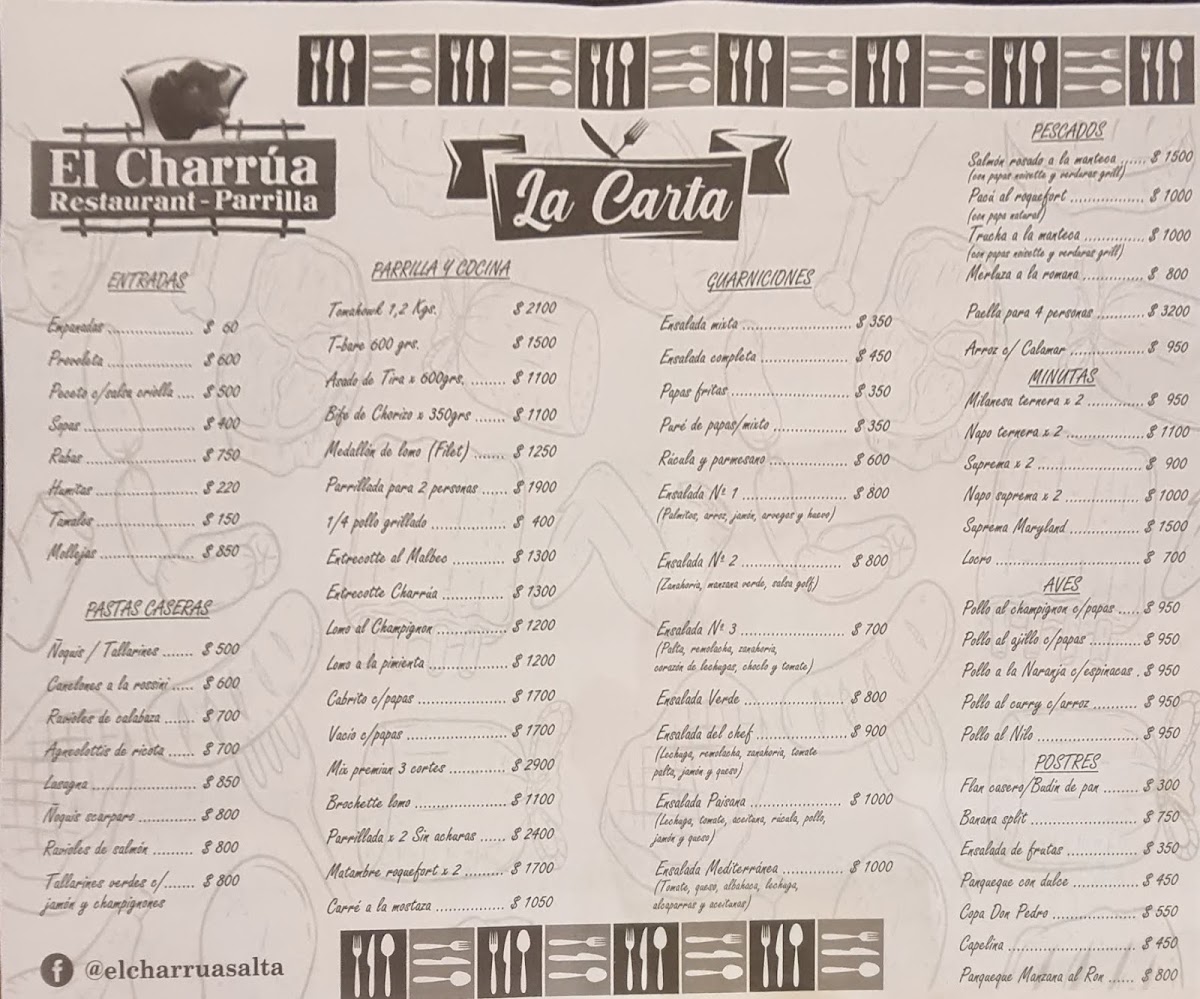 El Charrúa
Restaurant - Parrilla
La Carta
ENTRADAS
Empanadas ........ $ 60
Provoleta ........ $ 600
Peceto c/salsa criolla .... $ 500
Sopas ........ $ 400
Rabas ........ $ 750
Humitas ........ $ 220
Tamales ........ $ 150
Mollejas ........ $ 850
PASTAS CASERAS
Ñoquis / Tallarines ....... $ 500
Canelones a la rossini ..... $ 600
Ravioles de calabaza ....... $ 700
Agnolottis de ricota ...... $ 700
Lasagna ........ $ 850
Ñoquis scarparo ........ $ 800
Ravioles de salmón ......... $ 800
Tallarines verdes c/....... $ 800
jamón y champignones
@elcharruasalta
PARRILLA Y COCINA
Tomahowk 1,2 Kgs. $ 2100
T-bone 600 grs. $ 1500
Asado de Tira x 600grs. ........ $ 1100
Bife de Chorizo x 350grs ....... $ 1100
Medallón de lomo (Filet) ....... $ 1250
Parrillada para 2 personas ...... $ 1900
1/4 pollo grillado ........ $ 400
Entrecotte al Malbec ........ $ 1300
Entrecotte Charrúa ........ $ 1300
Lomo al Champignon ........ $ 1200
Lomo a la pimienta ........ $ 1200
Cabrito c/papas ........ $ 1700
Vacio c/papas ........ $ 1700
Mix premiun 3 cortes ........ $ 2900
Brochette lomo ........ $ 1100
Parrillada x 2 Sin achuras ...... $ 2400
Matambre roquefort x 2 ......... $ 1700
Carré a la mostaza ........ $ 1050
GUARNICIONES
Ensalada mixta ........ $ 350
Ensalada completa ........ $ 450
Papas fritas ........ $ 350
Puré de papas/mixto ........ $ 350
Rúcula y parmesano ........ $ 600
Ensalada Nº 1 ........ $ 800
(Palmitos, arroz, jamón, arvegas y huevo)
Ensalada Nº 2 ........ $ 800
(Zanahoria, manzana verde, salsa golf)
Ensalada Nº 3 ........ $ 700
(Palta, remolacha, zanahoria,
corazón de lechugas, choclo y tomate)
Ensalada Verde ........ $ 800
Ensalada del chef ........ $ 900
(Lechuga, remolacha, zanahoria, tomate
palta, jamón y queso)
Ensalada Paisana ........ $ 1000
(Lechuga, tomate, aceituna, rúcula, pollo,
jamón y queso)
Ensalada Mediterránea ........ $ 1000
(Tomate, queso, albahaca, lechuga,
alcaparras y aceitunas)
PESCADOS
Salmón rosado a la manteca ...... $ 1500
(con papas noisette y verduras grill)
Pacú al roquefort ........ $ 1000
(con papa natural)
Trucha a la manteca ........ $ 1000
(con papas noisette y verduras grill)
Merluza a la romana ........ $ 800
Paella para 4 personas ........ $ 3200
Arroz c/ Calamar ........ $ 950
MINUTAS
Milanesa ternera x 2 ........ $ 950
Napo ternera x 2 ........ $ 1100
Suprema x 2 ........ $ 900
Napo suprema x 2 ........ $ 1000
Suprema Maryland ........ $ 1500
Locro ........ $ 700
AVES
Pollo al champignon c/papas ..... $ 950
Pollo al ajillo c/papas ........ $ 950
Pollo a la Naranja c/espinacas . $ 950
Pollo al curry c/arroz ........ $ 950
Pollo al Nilo ........ $ 950
POSTRES
Flan casero/Budin de pan ........ $ 300
Banana split ........ $ 750
Ensalada de frutas ........ $ 350
Panqueque con dulce ........ $ 450
Copa Don Pedro ........ $ 550
Capelina ........ $ 450
Panqueque Manzana al Ron ...... $ 800